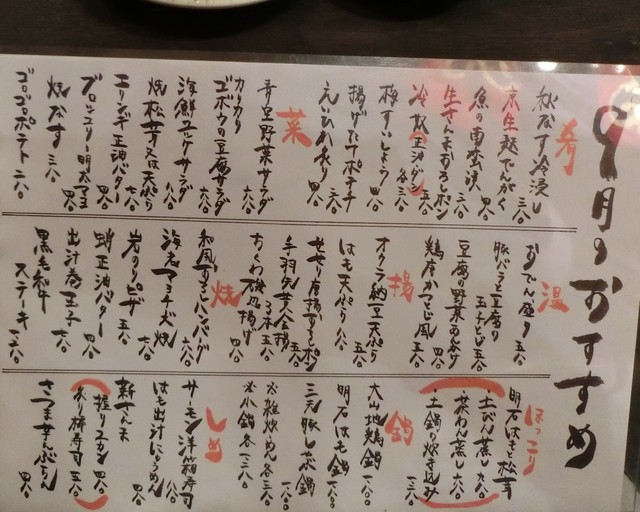 9月のおすすめ
肴
秋なす冷浸し 三八〇
京生麩でんがく 五八〇
魚の南蛮漬 四八〇
生さんまおろしポン 五八〇
冷奴(正油・ダシ) 各三八〇
梅すいしょう 四八〇
揚げたてポテチ 三八〇
えいひれ炙り 四八〇
菜
青豆野菜サラダ 六八〇
カリカリゴボウの豆腐サラダ 六八〇
海鮮ユッケサラダ 八八〇
焼松茸又は天ぷら
エリンギ正油バター 七八〇
ブロッコリー明太マヨ 四八〇
焼なす 三八〇
ゴロゴロポテト 二八〇
温
おでん盛り 五八〇
豚バラと豆腐の玉子とじ 五八〇
豆腐の野菜あんかけ 五八〇
鶏唐かつとじ風 四八〇
揚
オクラ納豆天ぷら 五八〇
はも天ぷら 八八〇
せせり唐揚おろしポン 五八〇
手羽先甘から揚 二本
ちくわ磯辺揚げ 四八〇
焼
和風おろしハンバーグ 六八〇
海老マヨチーズ焼 六八〇
岩のりピザ 五八〇
蛸正油バター 四八〇
出汁巻玉子 六八〇
黒毛和牛ステーキ 一二八〇
ほっこり
明石はもと松茸
土びん蒸し 九八〇
茶わん蒸し 六八〇
土鍋の炊き込み 一三八〇
鍋
大山地鶏鍋 一八〇〇
明石はも鍋
三元豚し茶鍋 一八〇〇
※雑炊の〆 各三八〇
※小鍋 各一三八〇
しめ
サーモン洋箱寿司 八八〇
はも出汁にゅうめん
新さんま
握り三カン 四八〇
あぶり棒寿司 五八〇
さつま芋ぷりん 四八〇